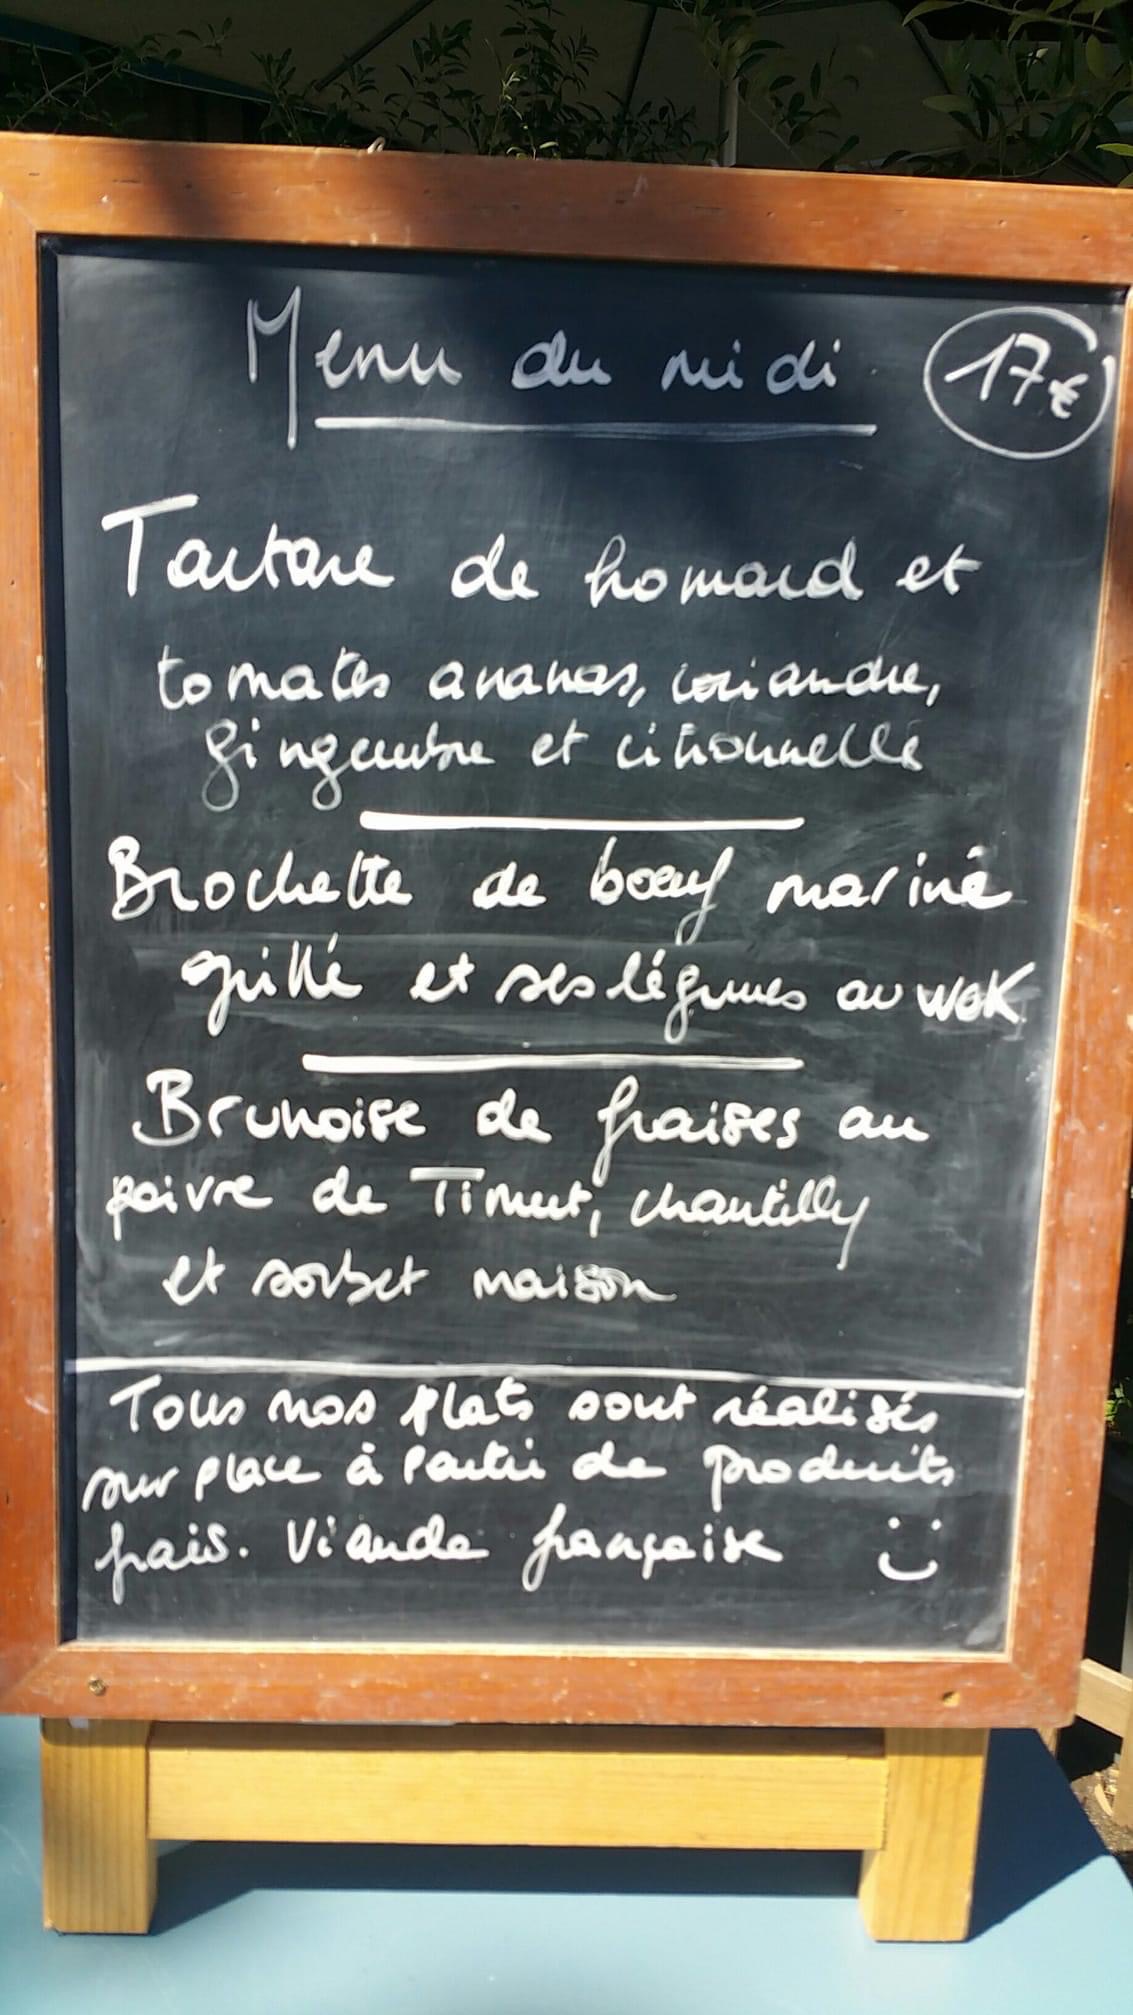 Menu du midi 17€
Tartare de homard et
tomates ananas, coriandre,
gingembre et citronnelle
Brochette de bœuf mariné
grillé et ses légumes au wok
Brunoise de fraises au
poivre de Timut, chantilly
et sorbet maison
Tous nos plats sont réalisés
sur place à partir de produits
frais. Viande française